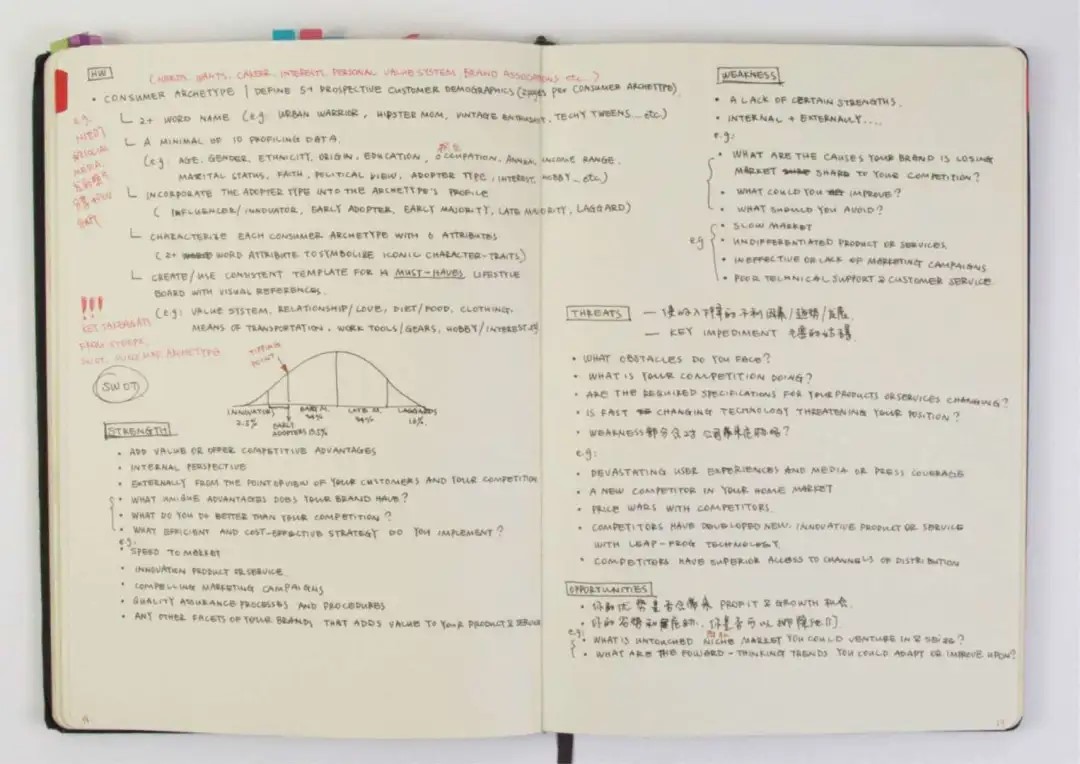 HW
(NEEDS, WANTS, CAREER, INTERESTS, PERSONAL VALUE SYSTEM, BRAND ASSOCIATIONS etc...)
• CONSUMER ARCHETYPE | DEFINE 5+ PROSPECTIVE CUSTOMER DEMOGRAPHICS (2 pages per CONSUMER ARCHETYPE)
e.g.
SOCIAL
MEDIA
2+ WORD NAME (e.g: URBAN WARRIOR, HIPSTER MOM, VINTAGE ENTHUSIAST, TECHY TWEENS... etc)
A MINIMAL OF 10 PROFILING DATA.
(e.g: AGE, GENDER, ETHNICITY, ORIGIN, EDUCATION, OCCUPATION, ANNUAL INCOME RANGE,
MARITAL STATUS, FAITH, POLITICAL VIEW, ADOPTER TYPE, INTEREST, HOBBY... etc)
INCORPORATE THE ADOPTER TYPE INTO THE ARCHETYPE'S PROFILE
( INFLUENCER/INNOVATOR, EARLY ADOPTER, EARLY MAJORITY, LATE MAJORITY, LAGGARD)
CHARACTERIZE EACH CONSUMER ARCHETYPE WITH 6 ATTRIBUTES
(2+ WORD ATTRIBUTE TO SYMBOLIZE ICONIC CHARACTER-TRAITS)
CREATE/USE CONSISTENT TEMPLATE FOR MUST-HAVES LIFESTYLE
BOARD WITH VISUAL REFERENCES.
(e.g: VALUE SYSTEM, RELATIONSHIP/LOVE, DIET/FOOD, CLOTHING,
MEANS OF TRANSPORTATION, WORK TOOLS/GEARS, HOBBY/INTEREST
!!!
KEY TAKEAWAYS
FROM
SWOT, ARCHETYPE
SWOT
TIPPING
POINT
INNOVATORS
2.5%
EARLY
ADOPTERS 13.5%
EARLY M.
34%
LATE M.
34%
LAGGARDS
16%
STRENGTH
• ADD VALUE OR OFFER COMPETITIVE ADVANTAGES
• INTERNAL PERSPECTIVE
• EXTERNALLY FROM THE POINT OF VIEW OF YOUR CUSTOMERS AND YOUR COMPETITION
• WHAT UNIQUE ADVANTAGES DOES YOUR BRAND HAVE?
• WHAT DO YOU DO BETTER THAN YOUR COMPETITION?
• WHAT EFFICIENT AND COST-EFFECTIVE STRATEGY DO YOU IMPLEMENT?
e.g.
• SPEED TO MARKET
• INNOVATION PRODUCT OR SERVICE
• COMPELLING MARKETING CAMPAIGNS
• QUALITY ASSURANCE PROCESSES AND PROCEDURES
• ANY OTHER FACETS OF YOUR BRANDS THAT ADDS VALUE TO YOUR PRODUCT & SERVICE
WEAKNESS
• A LACK OF CERTAIN STRENGTHS.
• INTERNAL + EXTERNALLY....
e.g:
• WHAT ARE THE CAUSES YOUR BRAND IS LOSING
MARKET SHARE TO YOUR COMPETITION?
• WHAT COULD YOU IMPROVE?
• WHAT SHOULD YOU AVOID?
e.g
• SLOW MARKET
• UNDIFFERENTIATED PRODUCT OR SERVICES.
• INEFFECTIVE OR LACK OF MARKETING CAMPAIGNS
• POOR TECHNICAL SUPPORT & CUSTOMER SERVICE
THREATS
— KEY IMPEDIMENT
• WHAT OBSTACLES DO YOU FACE?
• WHAT IS YOUR COMPETITION DOING?
• ARE THE REQUIRED SPECIFICATIONS FOR YOUR PRODUCTS OR SERVICES CHANGING?
• IS FAST CHANGING TECHNOLOGY THREATENING YOUR POSITION?
• WEAKNESS 部分会对公司
e.g:
• DEVASTATING USER EXPERIENCES AND MEDIA OR PRESS COVERAGE
• A NEW COMPETITOR IN YOUR HOME MARKET
• PRICE WARS WITH COMPETITORS.
• COMPETITORS HAVE DEVELOPED NEW, INNOVATIVE PRODUCT OR SERVICE
WITH LEAP-FROG TECHNOLOGY.
• COMPETITORS HAVE SUPERIOR ACCESS TO CHANNELS OF DISTRIBUTION
OPPORTUNITIES
• 你的优势是否会带来 PROFIT & GROWTH 机会.
• 你是否可以排除他们
e.g:
• WHAT IS UNTOUCHED NICHE MARKET YOU COULD VENTURE IN & SEIZE?
• WHAT ARE THE FOWARD-THINKING TRENDS YOU COULD ADAPT OR IMPROVE UPON?